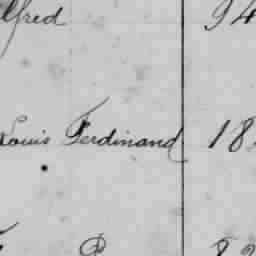 lfred 94
Louis Ferdinand 18